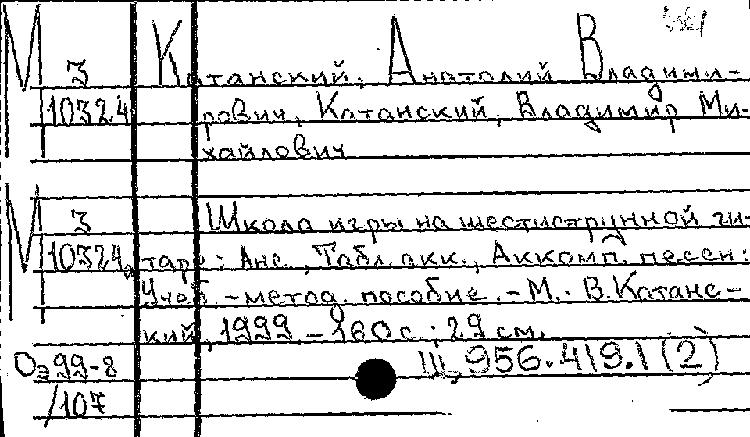 М 3 Катанский, Анатолий Владими-
10324 рович, Катанский, Владимир Ми-
хайлович
М 3 Школа игры на шестиструнной ги-
10324а таре: Анс., Табл. акк., Аккомп. песен:
Учеб.-метод. пособие. - М.: В.Катанс-
кий, 1999 - 160 с.; 29 см.
Оэ99-8 Ш, 956.419.1(2)
/107